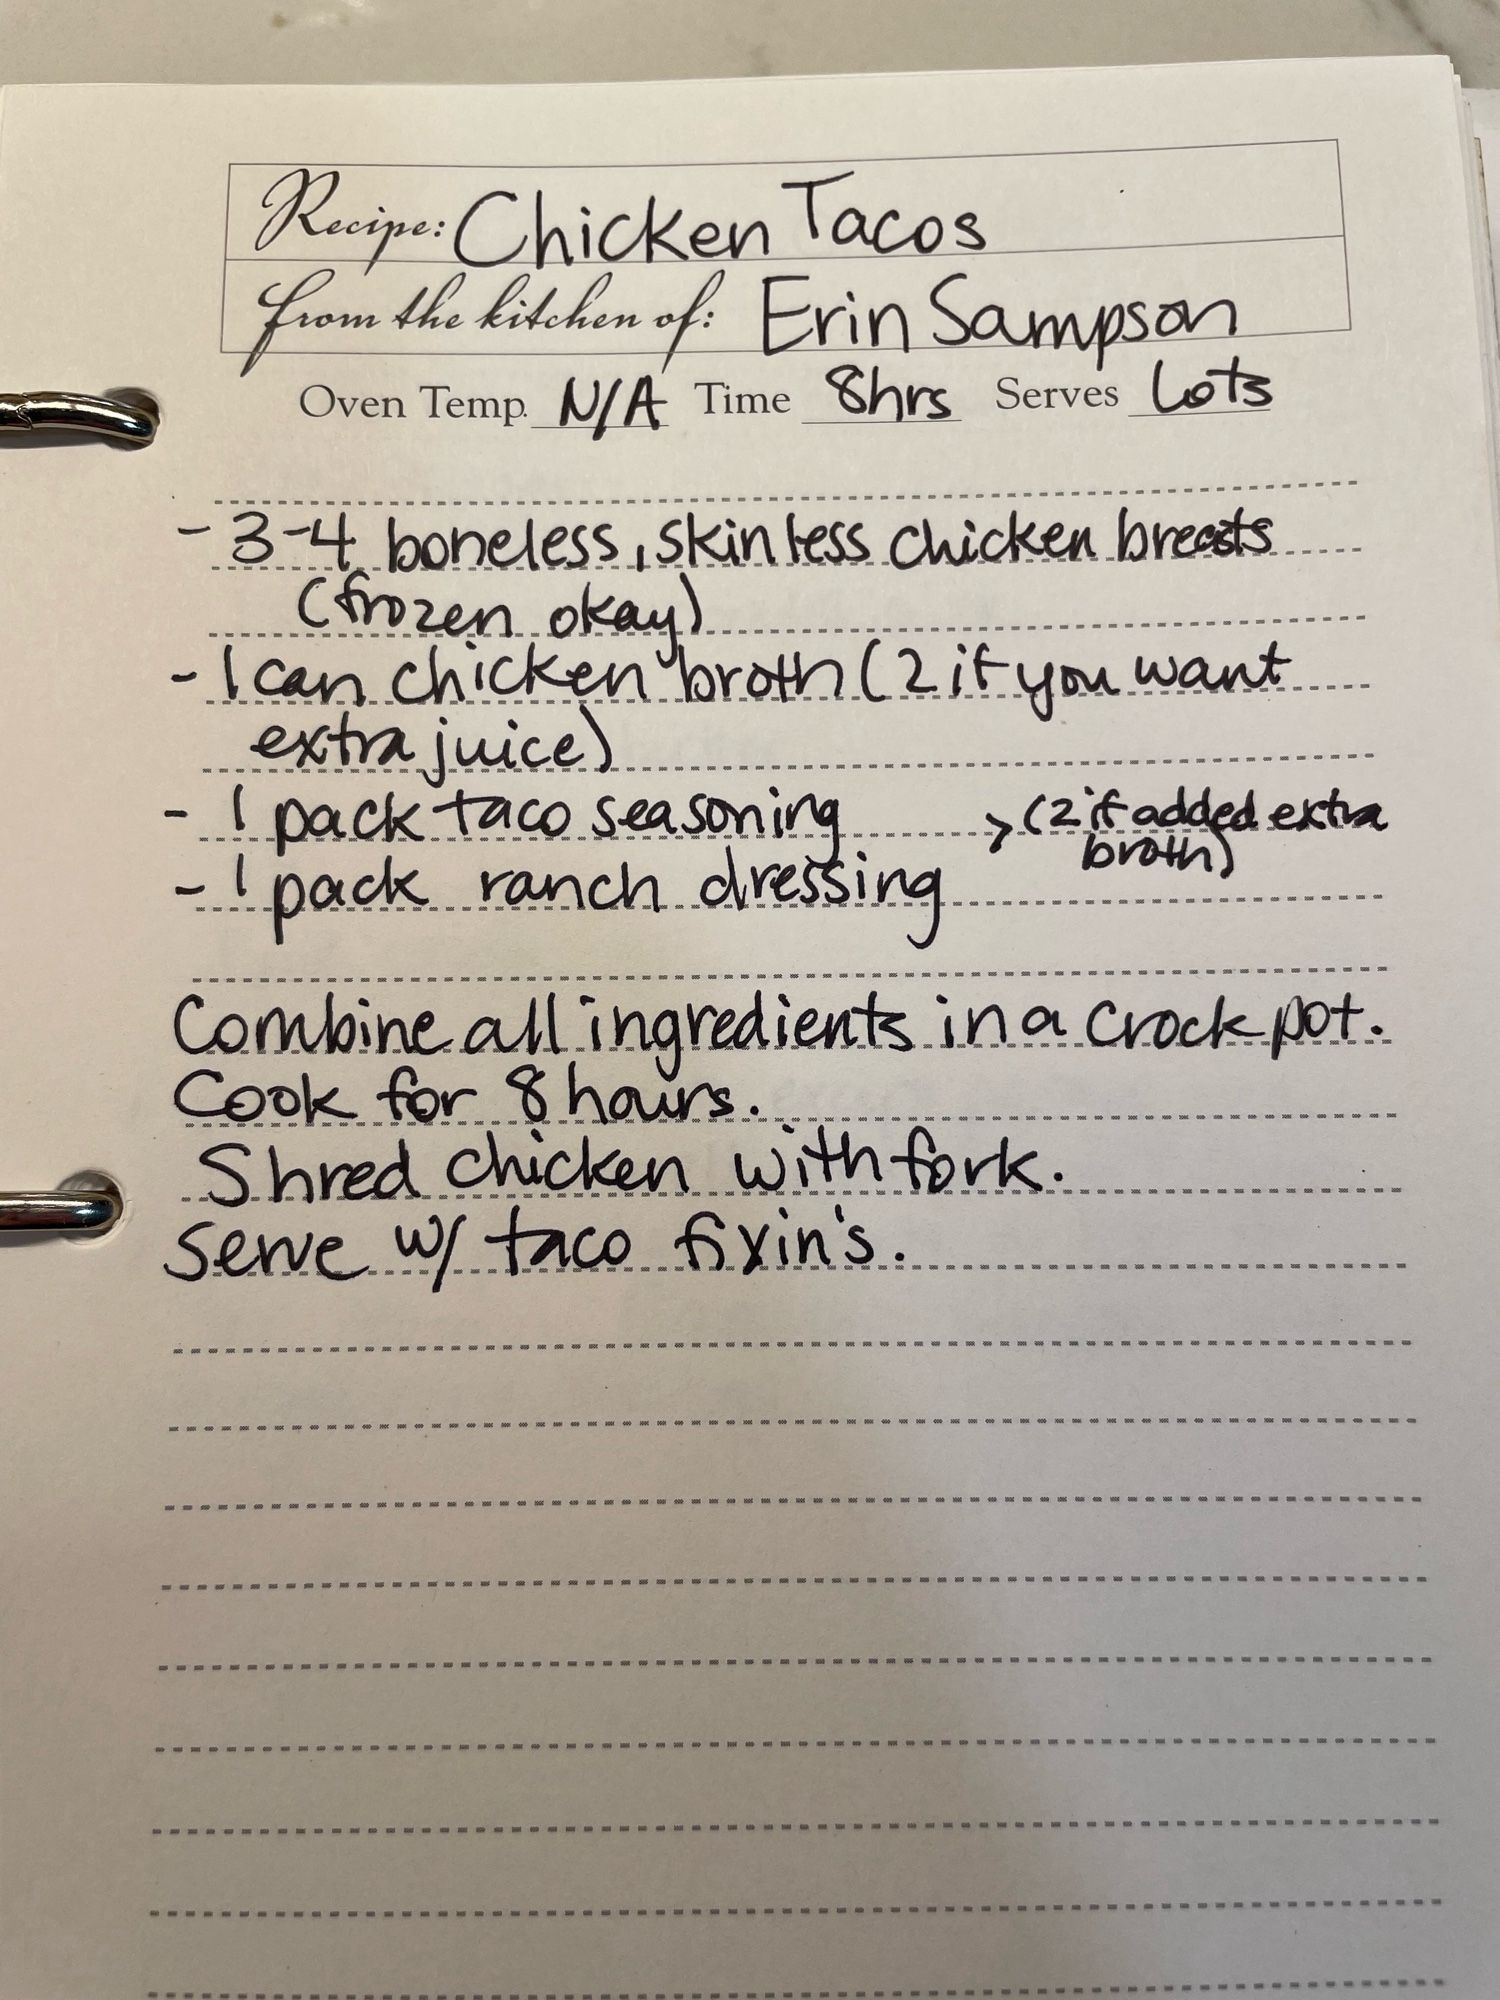 Recipe: Chicken Tacos
from the kitchen of: Erin Sampson
Oven Temp. N/A Time 8hrs Serves Lots
- 3-4 boneless, skinless chicken breasts
(frozen okay)
- 1 can chicken broth (2 if you want
extra juice)
- 1 pack taco seasoning > (2 if added extra
broth)
- 1 pack ranch dressing
Combine all ingredients in a crock pot.
Cook for 8 hours.
Shred chicken with fork.
Serve w/ taco fixin's.